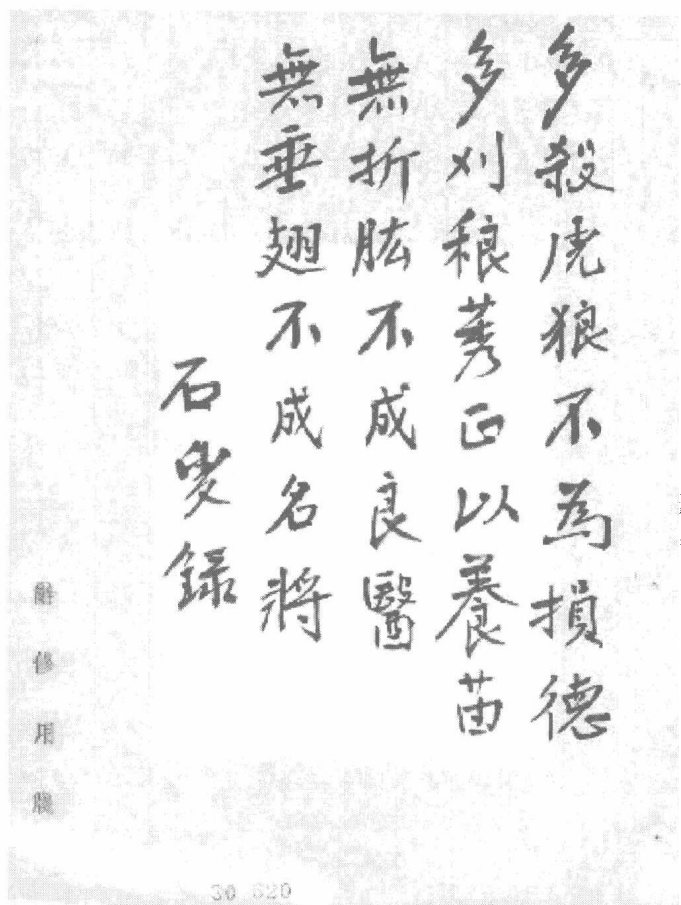 多殺虎狼不為損德
多刈稂莠正以養苗
無折肱不成良醫
無垂翅不成名將
石叟錄
用牋
30 620